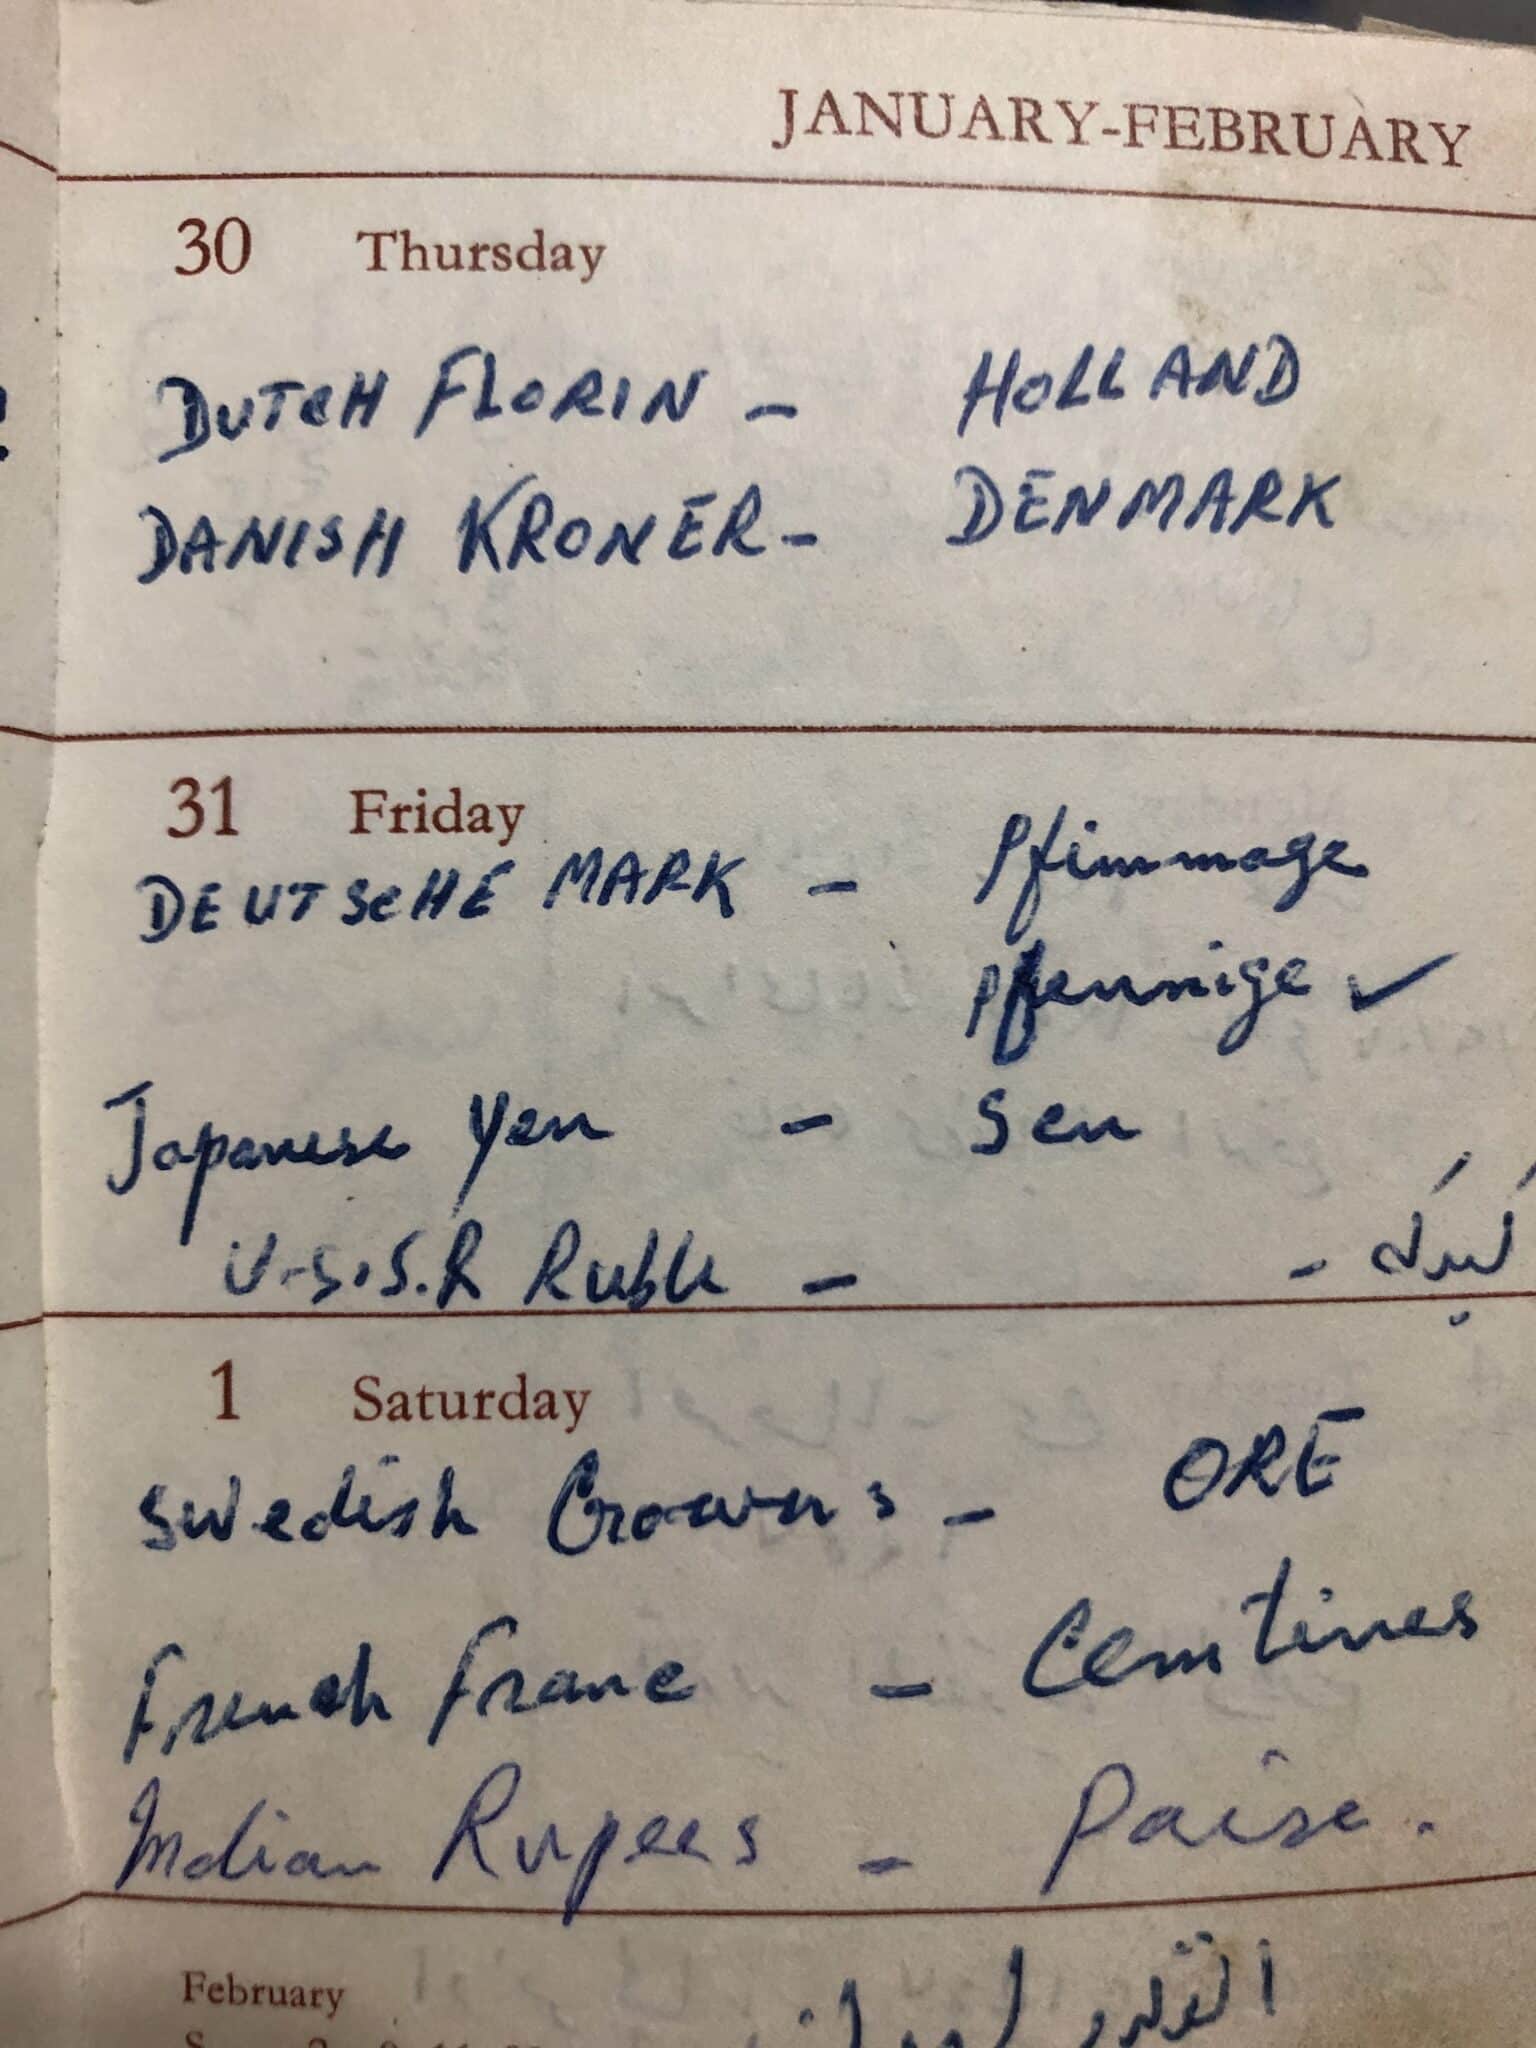 JANUARY-FEBRUARY
30 Thursday
DUTCH FLORIN - HOLLAND
DANISH KRONER - DENMARK
31 Friday
DEUTSCHE MARK - Pfimmage
Pfennige ✓
Japanese Yen - Sen
U.S.S.R Ruble - -
1 Saturday
Swedish Crowns - ORE
French Franc - Centimes
Indian Rupees - Paise.
February